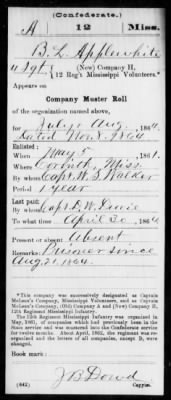 (Confederate.)
A 12 Miss.
B. L. Applewhite
4 Sgt, (New) Company H,
12 Reg't Mississippi Volunteers.*
Appears on
Company Muster Roll
of the organization named above,
for July & Aug, 1864.
dated Nov. 8, 1864
Enlisted:
When May 5, 1861.
Where Corinth, Miss.
By whom Capt. W. S. Walker
Period 1 year
Last paid:
By whom Capt. D. W.
To what time April 30, 1864
Present or absent Absent
Remarks: Prisoner since
Aug. 21, 1864.
*This company was successively designated as Captain
McLean's Company, Mississippi Volunteers, and as Captain
McLean's Company, (Old) Company A and (New) Company H,
12th Regiment Mississippi Infantry.
The 12th Regiment Mississippi Infantry was organized in
May, 1861, of companies which had previously been in the
State service and was mustered into the Confederate service
for twelve months. About April, 1862, the regiment was re-
organized and the letters of all companies, except D, were
changed.
Book mark:
J B Dowd
(642) Copyist.